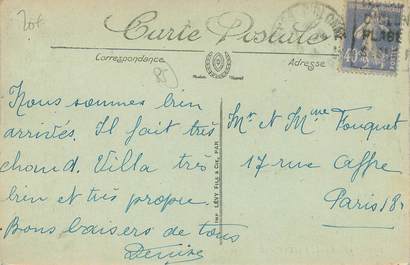 Carte Postale
Correspondance
Adresse
Nous sommes bien
arrivés. Il fait très
chaud. Villa très
bien et très propre.
Bons baisers de tous
Denise
IMP. LÉVY FILS & CIE, PARIS
Mr et Mme Fouquet
17 rue Caffre
Paris 18e
PLAGE
40c